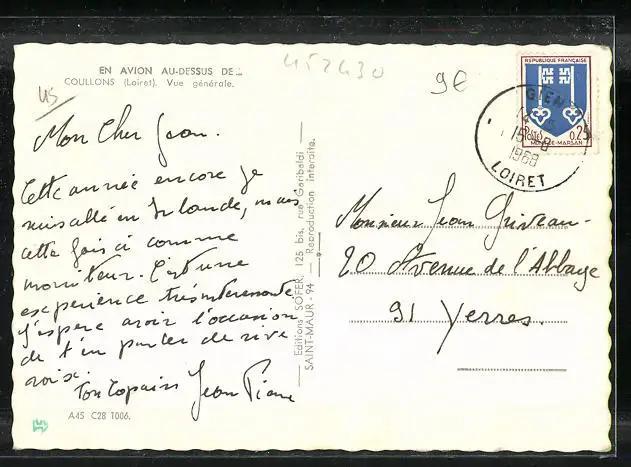 EN AVION AU-DESSUS DE...
COULLONS (Loiret). Vue générale.
45
Mon Cher Jean.
Cette année encore je
suis allé en Irlande, mais
cette fois ci comme
moniteur. C'est une
expérience très intéressante
J'espère avoir l'occasion
de t'en parler de vive
voix.
Ton copain Jean Pierre
A45 C28 1006.
Editions SOFER, 125 bis, rue Garibaldi
SAINT-MAUR - 94 — Reproduction interdite.
452430
9€
REPUBLIQUE FRANÇAISE
POSTES 0,25
MONT-DE-MARSAN
GIEN
15 -8
1968
LOIRET
Monsieur Jean
20 Avenue de l'Abbaye
91 Yerres.